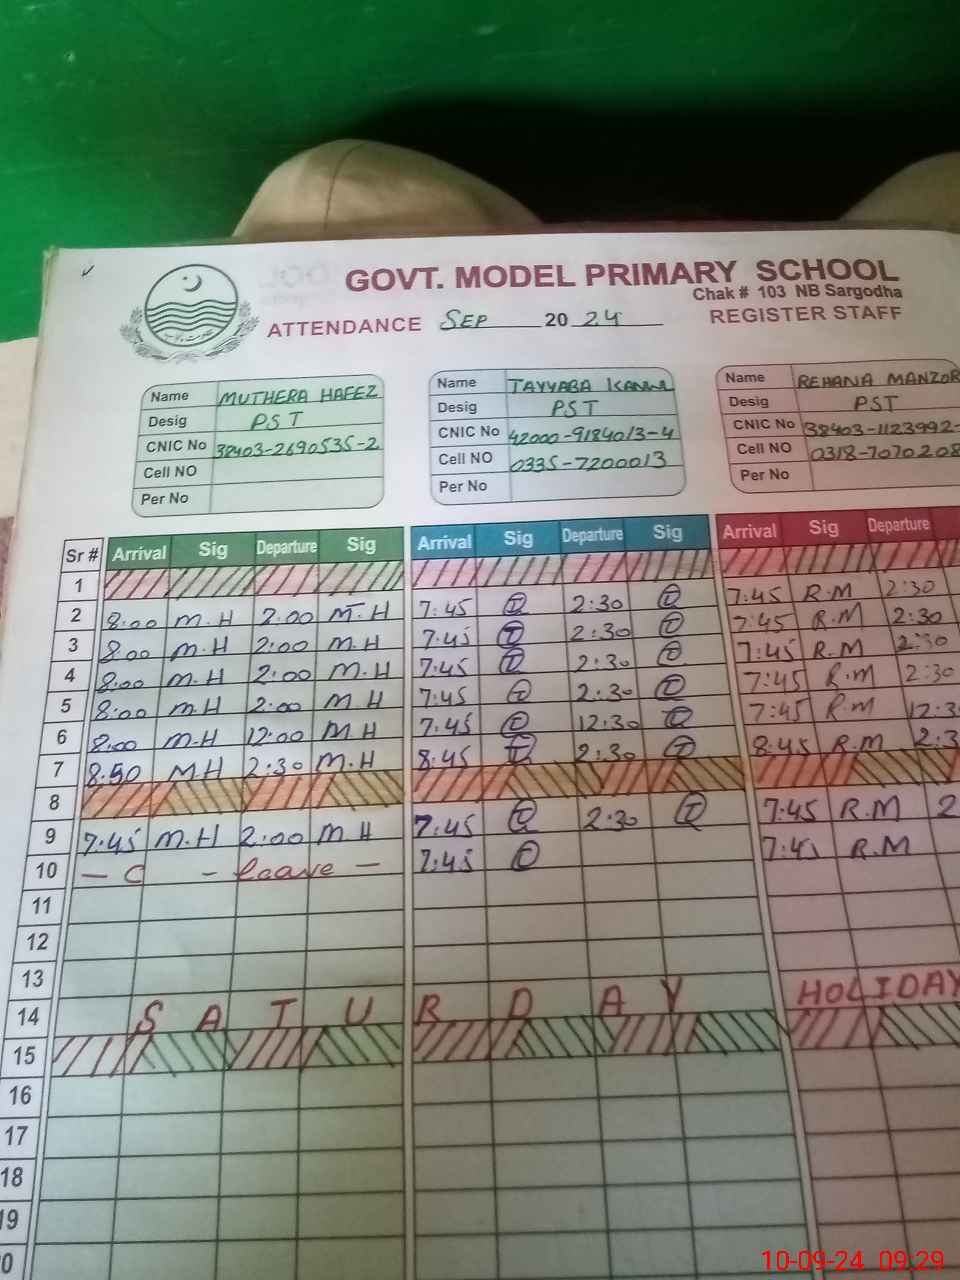 GOVT. MODEL PRIMARY SCHOOL
Chak # 103 NB Sargodha
ATTENDANCE SEP 20 24 REGISTER STAFF
Name MUTHERA HAFEZ
Desig PST
CNIC No 38403-2690535-2
Cell NO
Per No
Name TAYYABA KANWL
Desig PST
CNIC No 42000-9184013-4
Cell NO 0335-7200013
Per No
Name REHANA MANZOR
Desig PST
CNIC No 38403-1123992-
Cell NO 0318-7070208
Per No
Sr # Arrival Sig Departure Sig Arrival Sig Departure Sig Arrival Sig Departure
1
2 8:00 M.H 2:00 M.H 7:45 T 2:30 T 7:45 R.M 2:30
3 8:00 M.H 2:00 M.H 7:45 T 2:30 T 7:45 R.M 2:30
4 8:00 M.H 2:00 M.H 7:45 T 2:30 T 7:45 R.M 2:30
5 8:00 M.H 2:00 M.H 7:45 T 2:30 T 7:45 R.M 2:30
6 8:00 M.H 12:00 M.H 7:45 T 12:30 T 7:45 R.M 12:3
7 8:50 MH 2:30 M.H 8:45 T 2:30 T 8:45 R.M 2:3
8
9 7:45 M.H 2:00 M H 7:45 T 2:30 T 7:45 R.M 2
10 - C - leave - 7:45 T 7:45 R.M
11
12
13
14 SATURDAY HOLIDAY
15
16
17
18
19
0
10-09-24 09:29